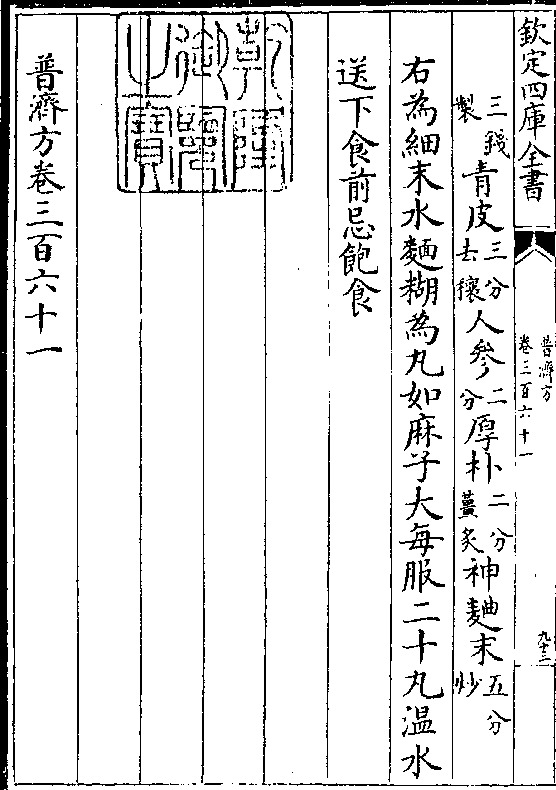 欽定四庫全書
普濟方
卷三百六十一
九十三
三錢製青皮三分去穰人參二分厚朴二分薑炙神麯末五分炒
右為細末水麵糊為丸如麻子大每服二十丸温水
送下食前忌飽食
乾隆御覽之寶
普濟方卷三百六十一